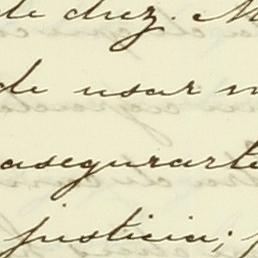 de diez. M
de usar n
asegurarte
justicia; f